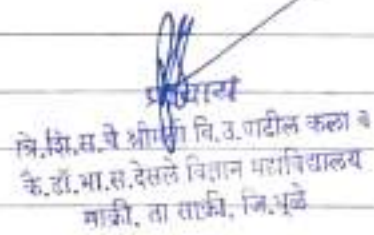 प्राचार्य
त्रि.शि.स.चे वि.उ.पाटील कला व
कै.डॉ.भा.स.देसले विज्ञान महाविद्यालय
साक्री, ता साक्री, जि.धुळे